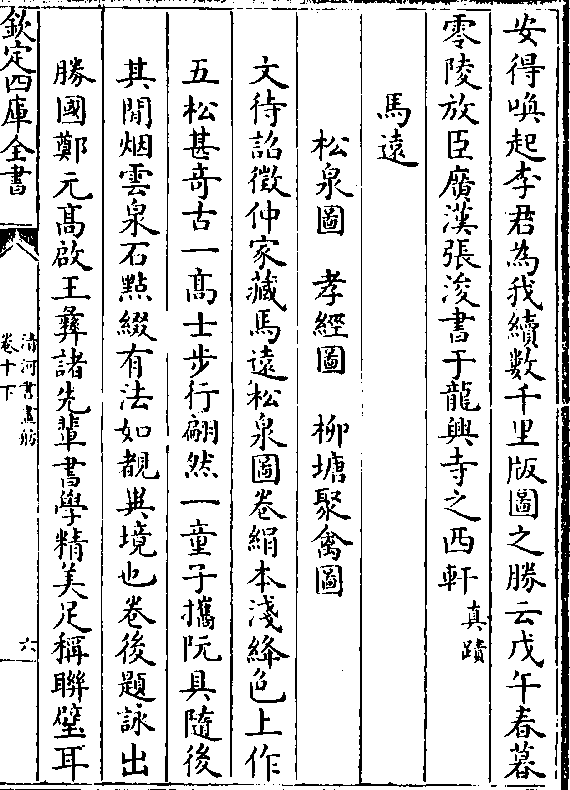 安得喚起李君為我續數千里版圖之勝云戊午春暮
零陵放臣廣漢張浚書于龍興寺之西軒真蹟
馬遠
松泉圖 孝經圖 柳塘聚禽圖
文待詔徵仲家藏馬遠松泉圖卷絹本淺絳色上作
五松甚奇古一髙士步行翩然一童子攜阮具隨後
其間烟雲泉石點綴有法如覩異境也卷後題詠出
勝國鄭元髙啟王彝諸先輩書學精美足稱聯璧耳
欽定四庫全書
清河書畫舫
卷十下
六